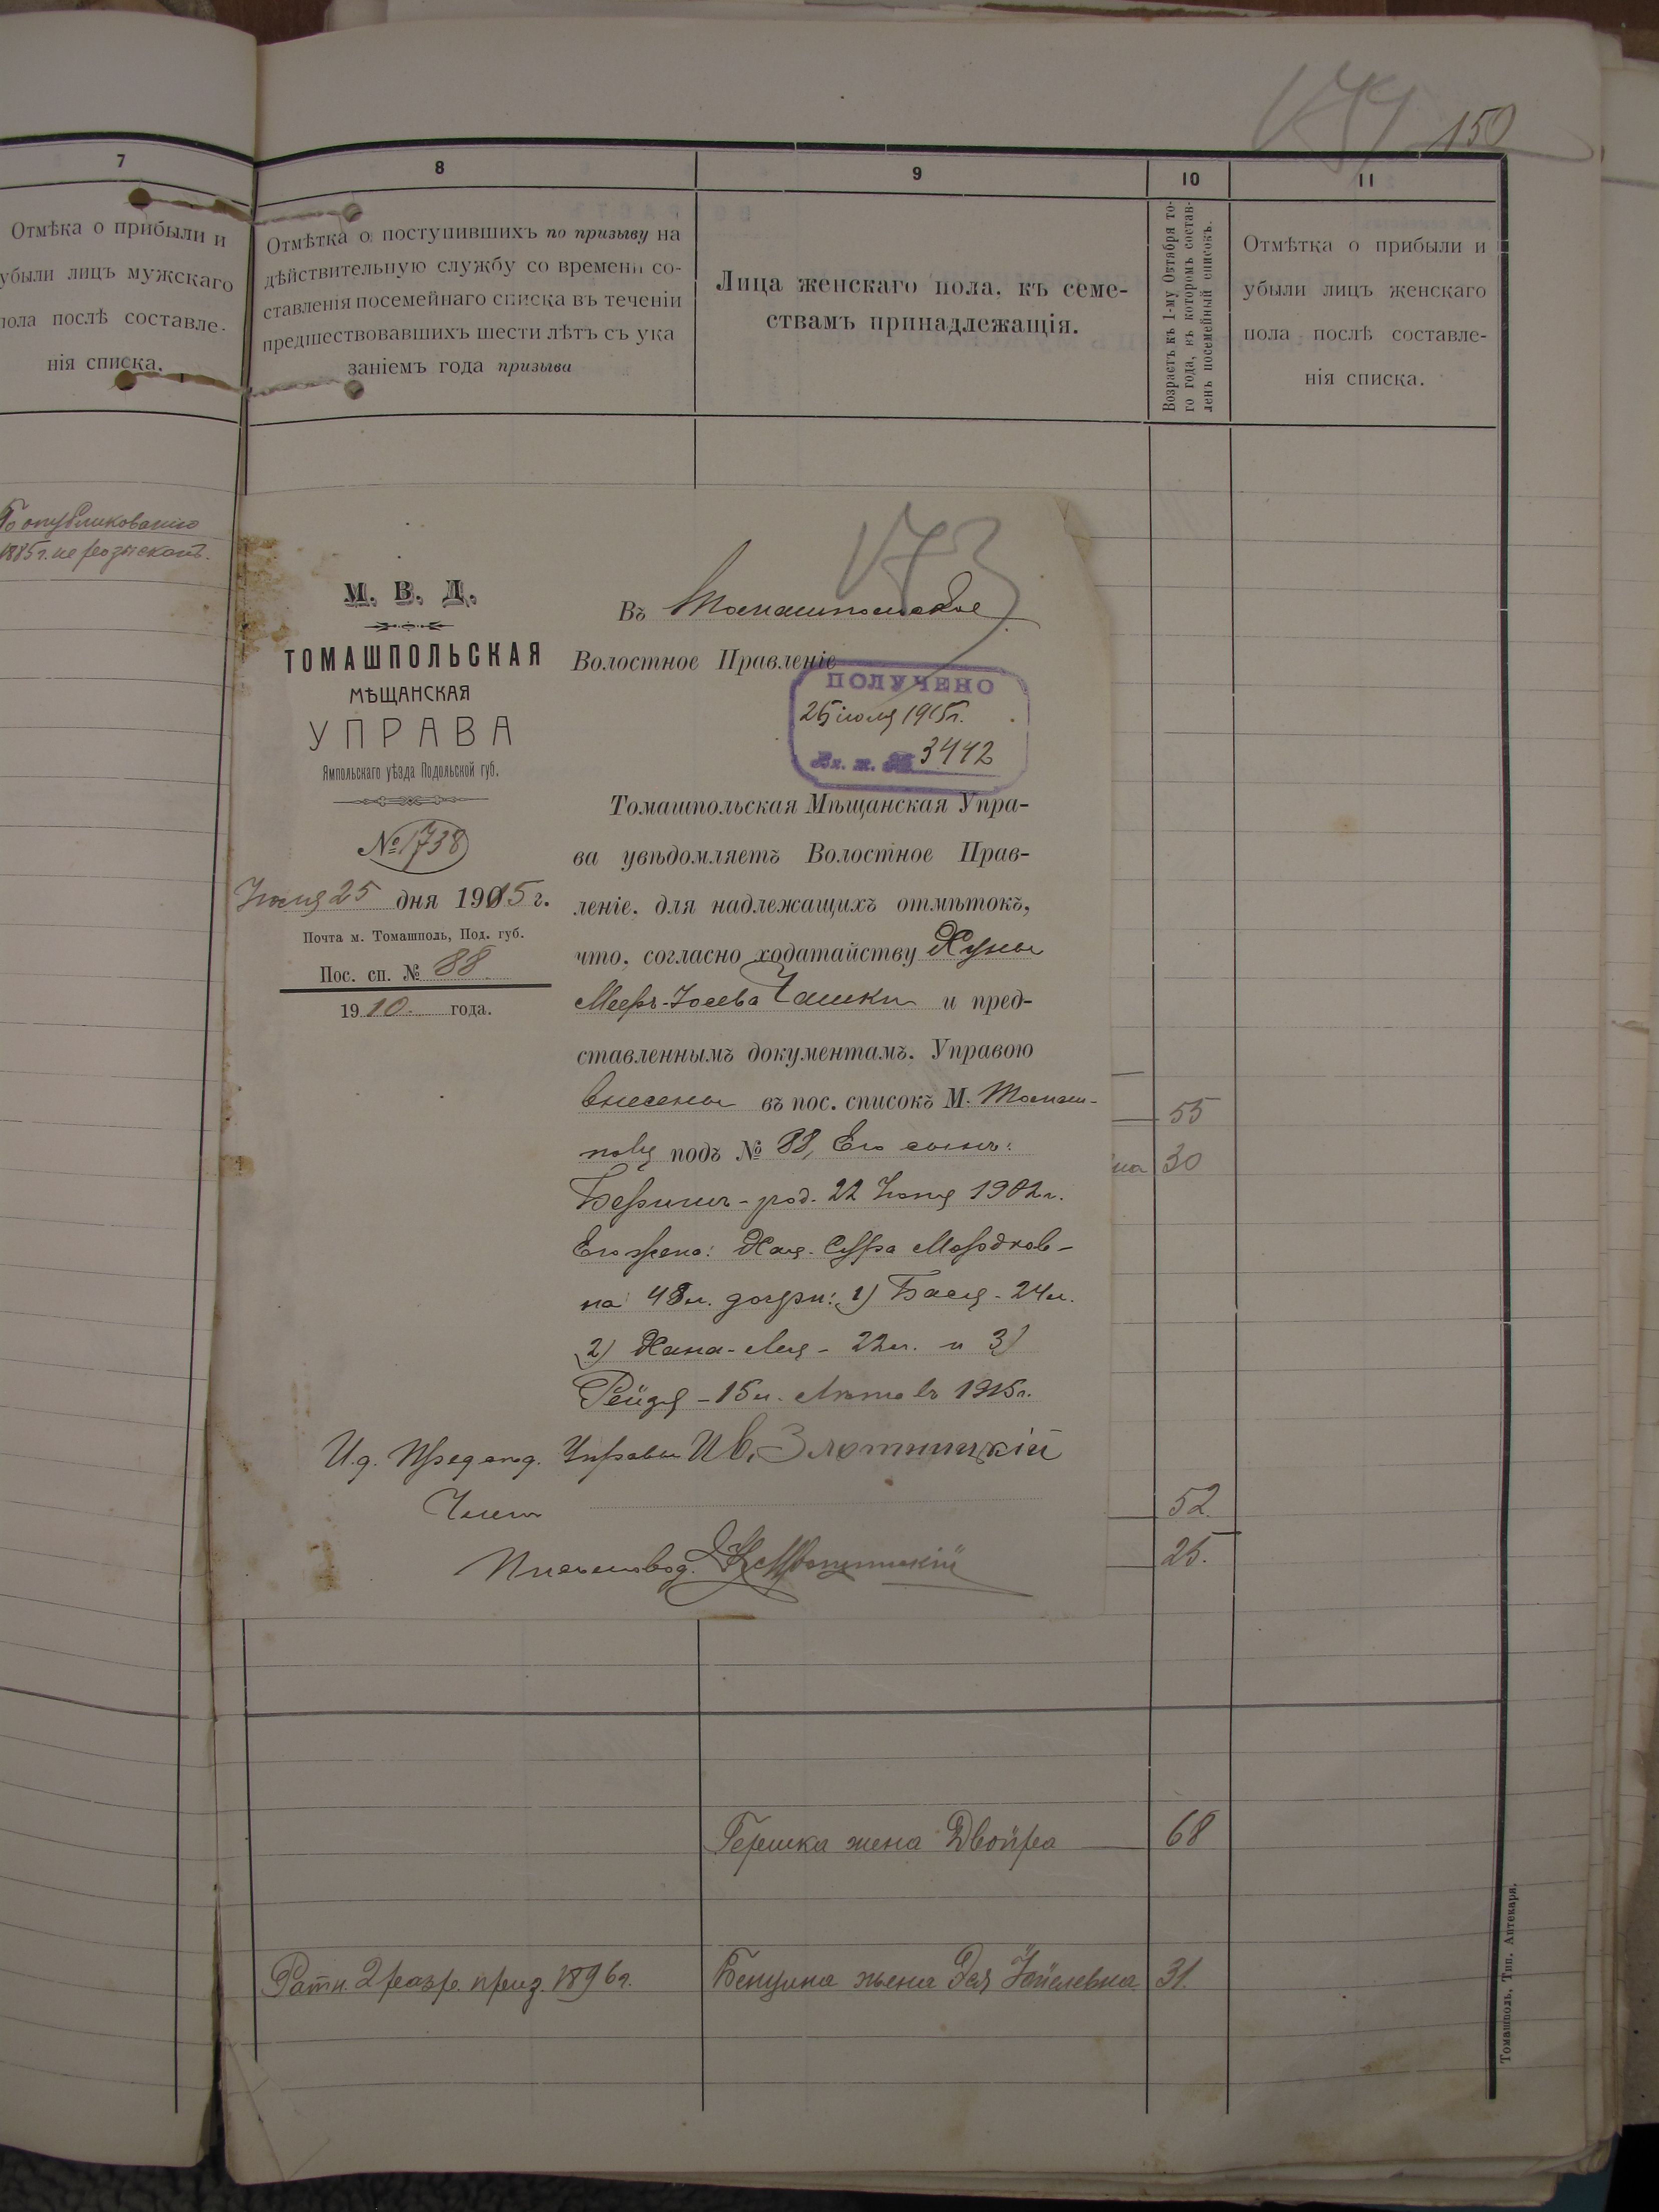 174
150
7
8
9
10
11
Отмѣка о прибыли и
убыли лицъ мужскаго
пола послѣ составле-
нія списка.
Отмѣтка о поступившихъ по призыву на
дѣйствительную службу со времени со-
ставленія посемейнаго списка въ теченіи
предшествовавшихъ шести лѣтъ съ ука
заніемъ года призыва
Лица женскаго пола, къ семе-
ствамъ принадлежащія.
Возрастъ къ 1-му Октября то-
го года, въ которомъ состав-
ленъ посемейный списокъ.
Отмѣтка о прибыли и
убыли лицъ женскаго
пола послѣ составле-
нія списка.
По опубликованію
1885 г. не розысканъ.
173
М. В. Д.
ТОМАШПОЛЬСКАЯ
МѢЩАНСКАЯ
УПРАВА
Ямпольскаго уѣзда Подольской губ.
№ 1738
Іюля 25 дня 1915 г.
Почта м. Томашполь, Под. губ.
Пос. сп. № 88
1910 года.
Въ Томашпольское
Волостное Правленіе
ПОЛУЧЕНО
25 іюля 1915 г.
Вх. ж. № 3442
Томашпольская Мѣщанская Упра-
ва увѣдомляетъ Волостное Прав-
леніе, для надлежащихъ отмѣтокъ,
что, согласно ходатайству Хуны
Мееръ-Іосева Чашки и пред-
ставленнымъ документамъ, Управою
внесены въ пос. списокъ М. Томаш-
поля подъ № 88, Его сынъ:
Беришъ - род. 22 Іюня 1902 г.
Его жена: Хая-Сура Мордков-
на 48 л. дочери: 1) Бася - 24 л.
2) Хана-Лея - 22 л. и 3)
Рейзя - 15 л. Лѣта въ 1915 г.
И.д. Предсѣд. Управы Ив. Злотницкій
Членъ
Письмовод.
55
на 30
52.
25.
Гершка жена Двойра 68
Ратн. 2 разр. приз. 1896 г.
Бенциона жена Эся Іойлевна 31.
Томашполь, Тип. Аптекаря.